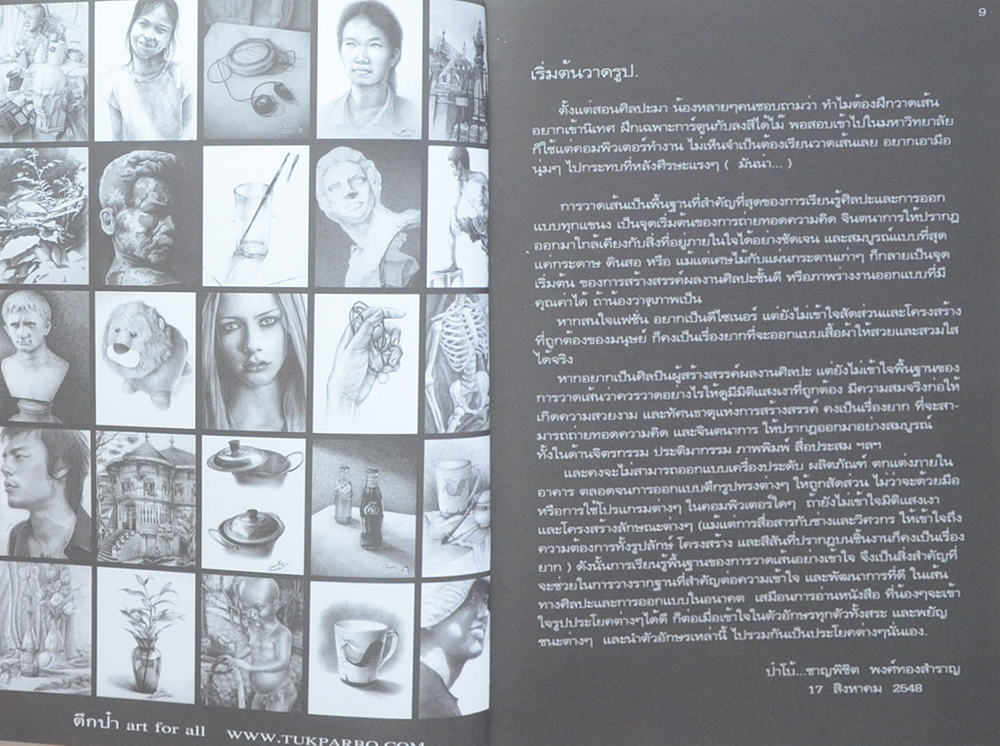 ตึกป๋า art for all WWW.TUKPARBO.COM
9
เริ่มต้นวาดรูป.
ตั้งแต่สอนศิลปะมา น้องหลายๆคนชอบถามว่า ทำไมต้องฝึกวาดเส้น
อยากเข้านิเทศ ฝึกเฉพาะการ์ตูนกับลงสีได้ไม๊ พอสอบเข้าไปในมหาวิทยาลัย
ก็ใช้แต่คอมพิวเตอร์ทำงาน ไม่เห็นจำเป็นต้องเรียนวาดเส้นเลย อยากเอามือ
นุ่มๆ ไปกระทบที่หลังศีรษะแรงๆ ( มันน่า... )
การวาดเส้นเป็นพื้นฐานที่สำคัญที่สุดของการเรียนรู้ศิลปะและการออก
แบบทุกแขนง เป็นจุดเริ่มต้นของการถ่ายทอดความคิด จินตนาการให้ปรากฎ
ออกมาใกล้เคียงกับสิ่งที่อยู่ภายในใจได้อย่างชัดเจน และสมบูรณ์แบบที่สุด
แค่กระดาษ ดินสอ หรือ แม้แต่เศษไม้กับแผ่นกระดานเก่าๆ ก็กลายเป็นจุด
เริ่มต้น ของการสร้างสรรค์ผลงานศิลปะชั้นดี หรือภาพร่างงานออกแบบที่มี
คุณค่าได้ ถ้าน้องวาดภาพเป็น
หากสนใจแฟชั่น อยากเป็นดีไซเนอร์ แต่ยังไม่เข้าใจสัดส่วนและโครงสร้าง
ที่ถูกต้องของมนุษย์ ก็คงเป็นเรื่องยากที่จะออกแบบเสื้อผ้าให้สวยและสวมใส
ได้จริง
หากอยากเป็นศิลปินผู้สร้างสรรค์ผลงานศิลปะ แต่ยังไม่เข้าใจพื้นฐานของ
การวาดเส้นว่าควรวาดอย่างไรให้ดูมีมิติแสงเงาที่ถูกต้อง มีความสมจริงก่อให้
เกิดความสวยงาม และทัศนธาตุแห่งการสร้างสรรค์ คงเป็นเรื่องยาก ที่จะสา-
มารถถ่ายทอดความคิด และจินตนาการ ให้ปรากฎออกมาอย่างสมบูรณ์
ทั้งในด้านจิตรกรรม ประติมากรรม ภาพพิมพ์ สื่อประสม ฯลฯ
และคงจะไม่สามารถออกแบบเครื่องประดับ ผลิตภัณฑ์ ตกแต่งภายใน
อาคาร ตลอดจนการออกแบบตึกรูปทรงต่างๆ ให้ถูกสัดส่วน ไม่ว่าจะด้วยมือ
หรือการใช้โปรแกรมต่างๆ ในคอมพิวเตอร์ใดๆ ถ้ายังไม่เข้าใจมิติแสงเงา
และโครงสร้างลักษณะต่างๆ (แม้แต่การสื่อสารกับช่างและวิศวกร ให้เข้าใจถึง
ความต้องการทั้งรูปลักษ์ โครงสร้าง และสีสันที่ปรากฎบนชิ้นงานก็คงเป็นเรื่อง
ยาก ) ดังนั้นการเรียนรู้พื้นฐานของการวาดเส้นอย่างเข้าใจ จึงเป็นสิ่งสำคัญที่
จะช่วยในการวางรากฐานที่สำคัญต่อความเข้าใจ และพัฒนาการที่ดี ในเส้น
ทางศิลปะและการออกแบบในอนาคต เสมือนการอ่านหนังสือ ที่น้องๆจะเข้า
ใจรูปประโยคต่างๆได้ดี ก็ต่อเมื่อเข้าใจในตัวอักษรทุกตัวทั้งสระ และพยัญ
ชนะต่างๆ และนำตัวอักษรเหล่านี้ ไปรวมกันเป็นประโยคต่างๆนั่นเอง.
ป๋าโบ้...ชาญพิชิต พงศ์ทองสำราญ
17 สิงหาคม 2548